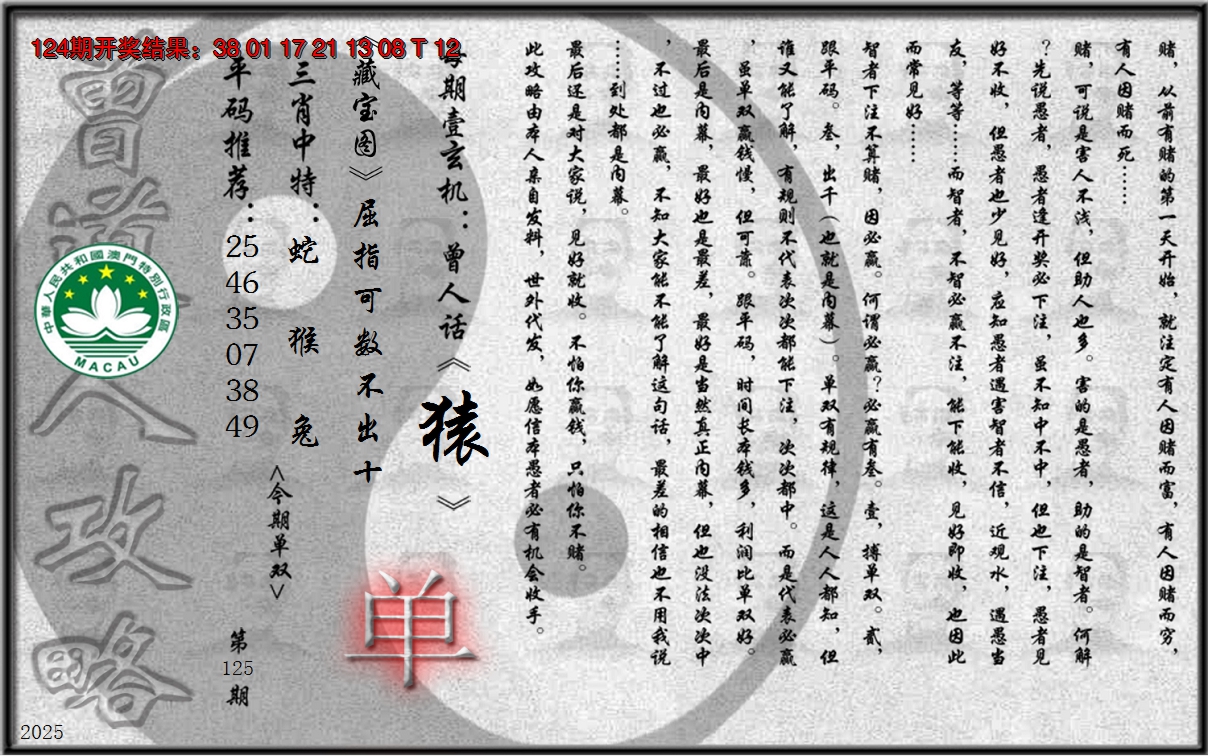 124期开奖结果：38 01 17 21 13 08 T 12
赌，从前有赌的第一天开始，就注定有人因赌而富，有人因赌而穷，
有人因赌而死……
赌，可说是害人不浅，但助人也多。害的是愚者，助的是智者。何解
？先说愚者，愚者逢开奖必下注，虽不知中不中，但也下注，愚者见
好不收，但愚者也少见好，应知愚者遇害智者不信，近观水，遇愚当
友，等等……而智者，不智必赢不注，能下能收，见好即收，也因此
而常见好……
智者下注不算赌，因必赢。何谓必赢？必赢有叁。壹，搏单双。贰，
跟平码。叁，出千（也就是内幕）。单双有规律，这是人人都知，但
谁又能了解，有规则不代表次次都能下注，次次都中。而是代表必赢
，虽单双赢钱慢，但可靠。跟平码，时间长本钱多，利润比单双好。
最后是内幕，最好也是最差，最好是当然真正内幕，但也没法次次中
，不过也必赢，不知大家能不能了解这句话，最差的相信也不用我说
……到处都是内幕。
最后还是对大家说，见好就收。不怕你赢钱，只怕你不赌。
此攻略由本人亲自发料，世外代发，如愿信本愚者必有机会收手。
每期壹玄机：曾人话《猿》
《藏宝图》屈指可数不出十
单
三肖中特：蛇 猴 兔
<今期单双>
平码推荐：25 46 35 07 38 49
第125期
曾道人攻略
中華人民共和國澳門特別行政區
MACAU
2025